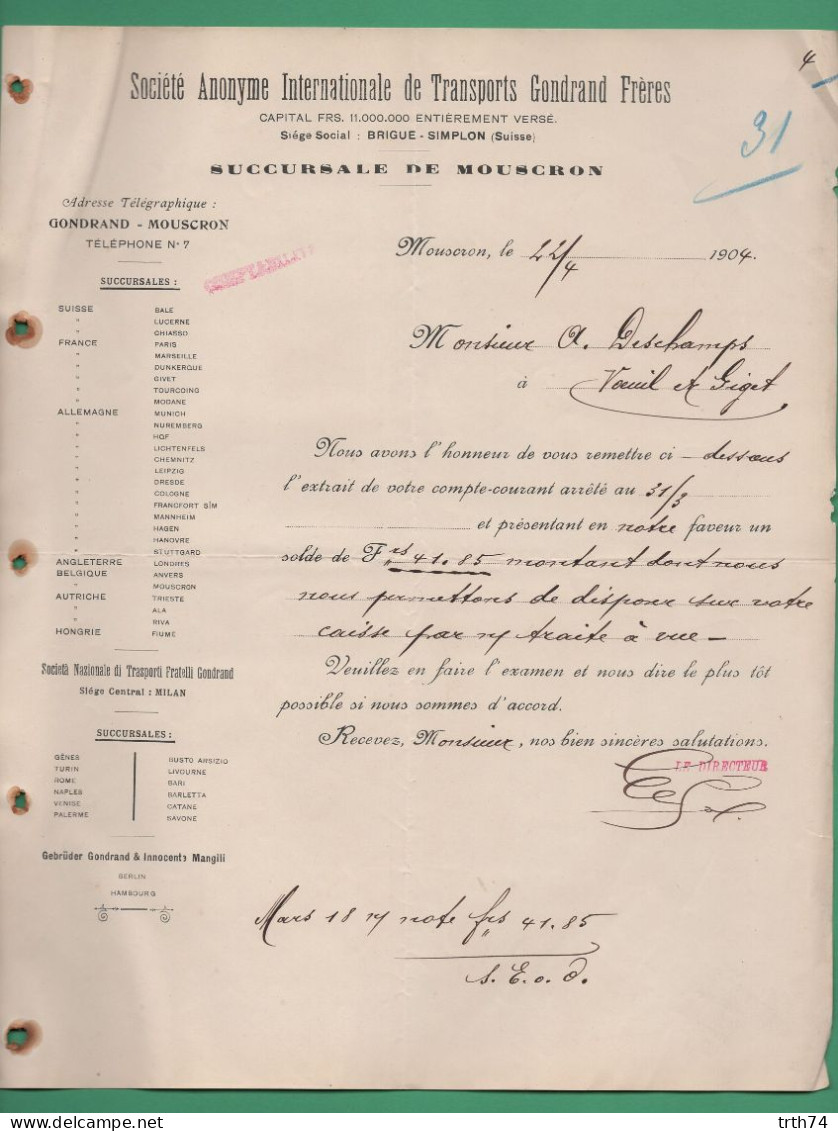 4
Société Anonyme Internationale de Transports Gondrand Frères
CAPITAL FRS. 11.000.000 ENTIÈREMENT VERSÉ.
Siége Social : BRIGUE - SIMPLON (Suisse)
31
SUCCURSALE DE MOUSCRON
Adresse Télégraphique :
GONDRAND - MOUSCRON
TÉLÉPHONE N° 7
COMPTABILITÉ
Mouscron, le 22/4 1904.
Monsieur A. Deschamps
à Vœuil et Giget
SUCCURSALES :
SUISSE BALE
" LUCERNE
" CHIASSO
FRANCE PARIS
" MARSEILLE
" DUNKERQUE
" GIVET
" TOURCOING
" MODANE
ALLEMAGNE MUNICH
" NUREMBERG
" HOF
" LICHTENFELS
" CHEMNITZ
" LEIPZIG
" DRESDE
" COLOGNE
" FRANCFORT S/M
" MANNHEIM
" HAGEN
" HANOVRE
" STUTTGARD
ANGLETERRE LONDRES
BELGIQUE ANVERS
" MOUSCRON
AUTRICHE TRIESTE
" ALA
" RIVA
HONGRIE FIUME
Nous avons l'honneur de vous remettre ci-dessous
l'extrait de votre compte-courant arrêté au 31/3
et présentant en notre faveur un
solde de Frs 41.85 montant dont nous
nous permettons de disposer sur votre
caisse par n/ traite à vue -
Veuillez en faire l'examen et nous dire le plus tôt
possible si nous sommes d'accord.
Recevez, Monsieur, nos bien sincères salutations.
LE DIRECTEUR
Società Nazionale di Trasporti Fratelli Gondrand
Siége Central : MILAN
SUCCURSALES :
GÊNES BUSTO ARSIZIO
TURIN LIVOURNE
ROME BARI
NAPLES BARLETTA
VENISE CATANE
PALERME SAVONE
Gebrüder Gondrand & Innocente Mangili
BERLIN
HAMBOURG
Mars 18 n/ note frs 41.85
S. E. o. O.
delcampe.net
trth74